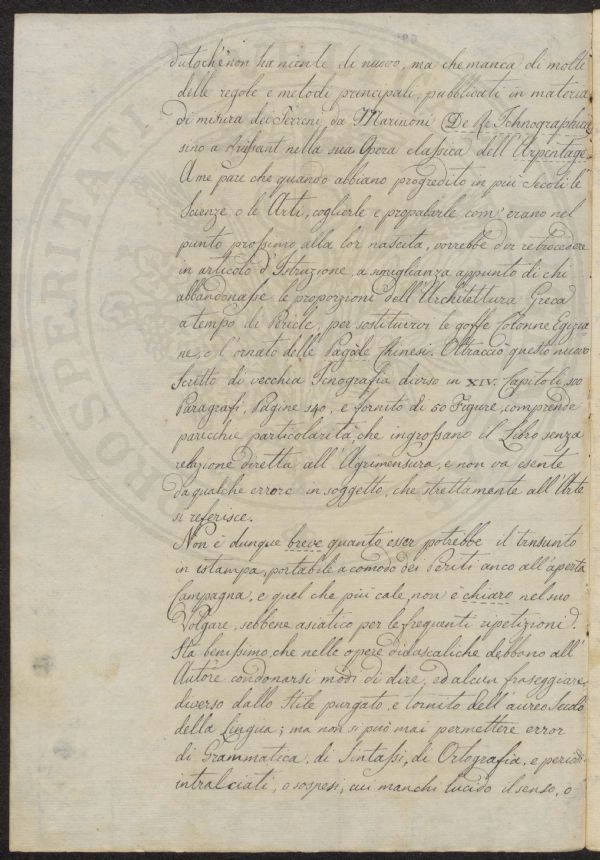 dutochè non ha niente di nuovo, ma che manca di molte
delle regole e metodi principali, pubblicati in materia
di misura dei Terreni, da Marinoni (De Re Ichnographica)
sino a nella sua Opera classica dell'Arpentage.
A me pare che quando abbiano progredito in più Secoli le
Scienze, o le Arti, coglierle e propalarle com'erano nel
punto prossimo alla lor nascita, vorrebbe dir retrocedere
in articolo d'Istruzione, a simiglianza appunto di chi
abbandonasse le proporzioni dell'Architettura Greca
a tempo di Pericle, per sostituirvi le goffe Colonne Egizia-
ne, e l'ornato delle Pagòde Chinesi. Oltracciò questo nuovo
Scritto di vecchia Icnografia diviso in XIV. Capitoli, 300
Paragrafi, Pagine 140, e fornito di 50 Figure, comprende
parecchie particolarità, che ingrossano il Libro senza
relazione diretta all'Agrimensura, e non va esente
da qualche errore in soggetto, che strettamente all'Arte
si referisce.
Non è dunque breve quanto esser potrebbe il trasunto
in istampa, portabile a comodo dei Periti anco all'aperta
Campagna, e quel che più cale, non è chiaro nel suo
Volgare, sebbene asiatico per le frequenti ripetizioni.
Stà benissimo, che nelle opere didascaliche debbono all'
Autore condonarsi modi di dire, ed alcun fraseggiare,
diverso dallo Stile purgato, e tornito dell'aureo Secolo
della Lingua; ma non si può mai permettere error
di Grammatica, di Sintassi, di Ortografia, e periodi
intralciati, o sospesi, cui manchi lucido il senso, o